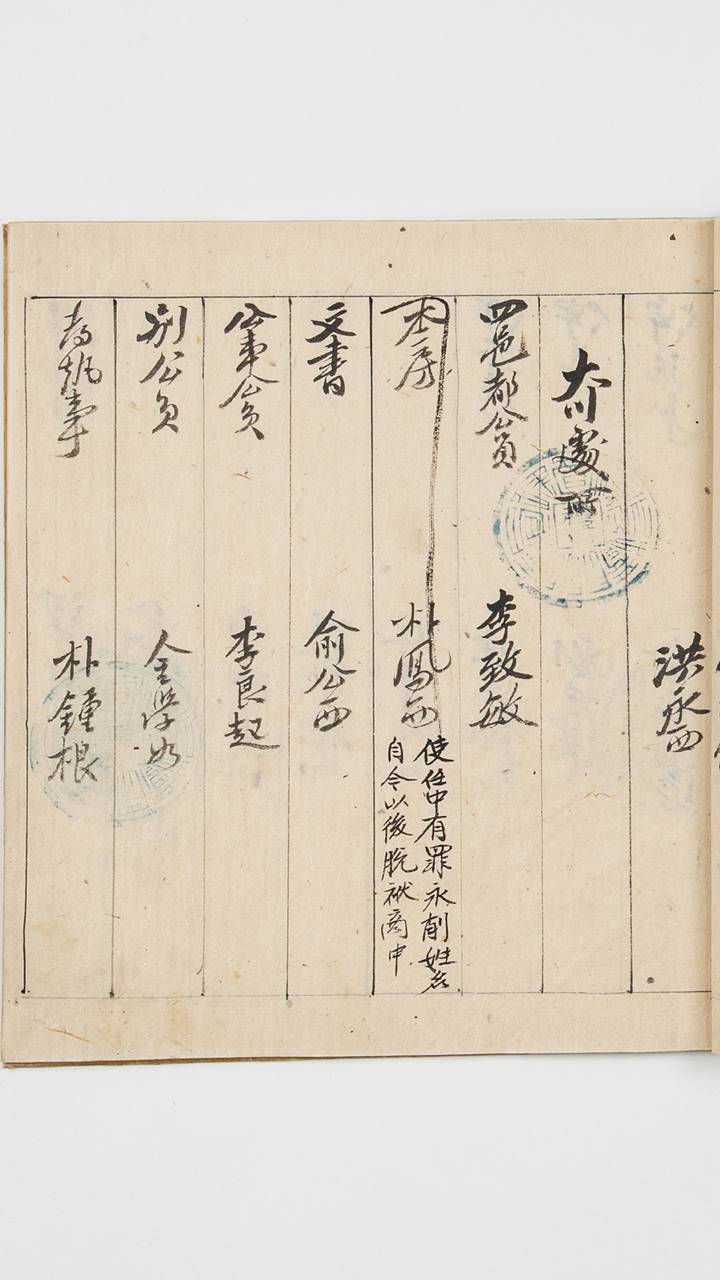 洪永四
大川處所
四邑都公員 李致敏
本房 朴鳳西
使任中有罪永削姓名
自今以後脫袱商中
文書 俞公西
公事公員 李良起
別公員 金學如
都執事 朴鍾根